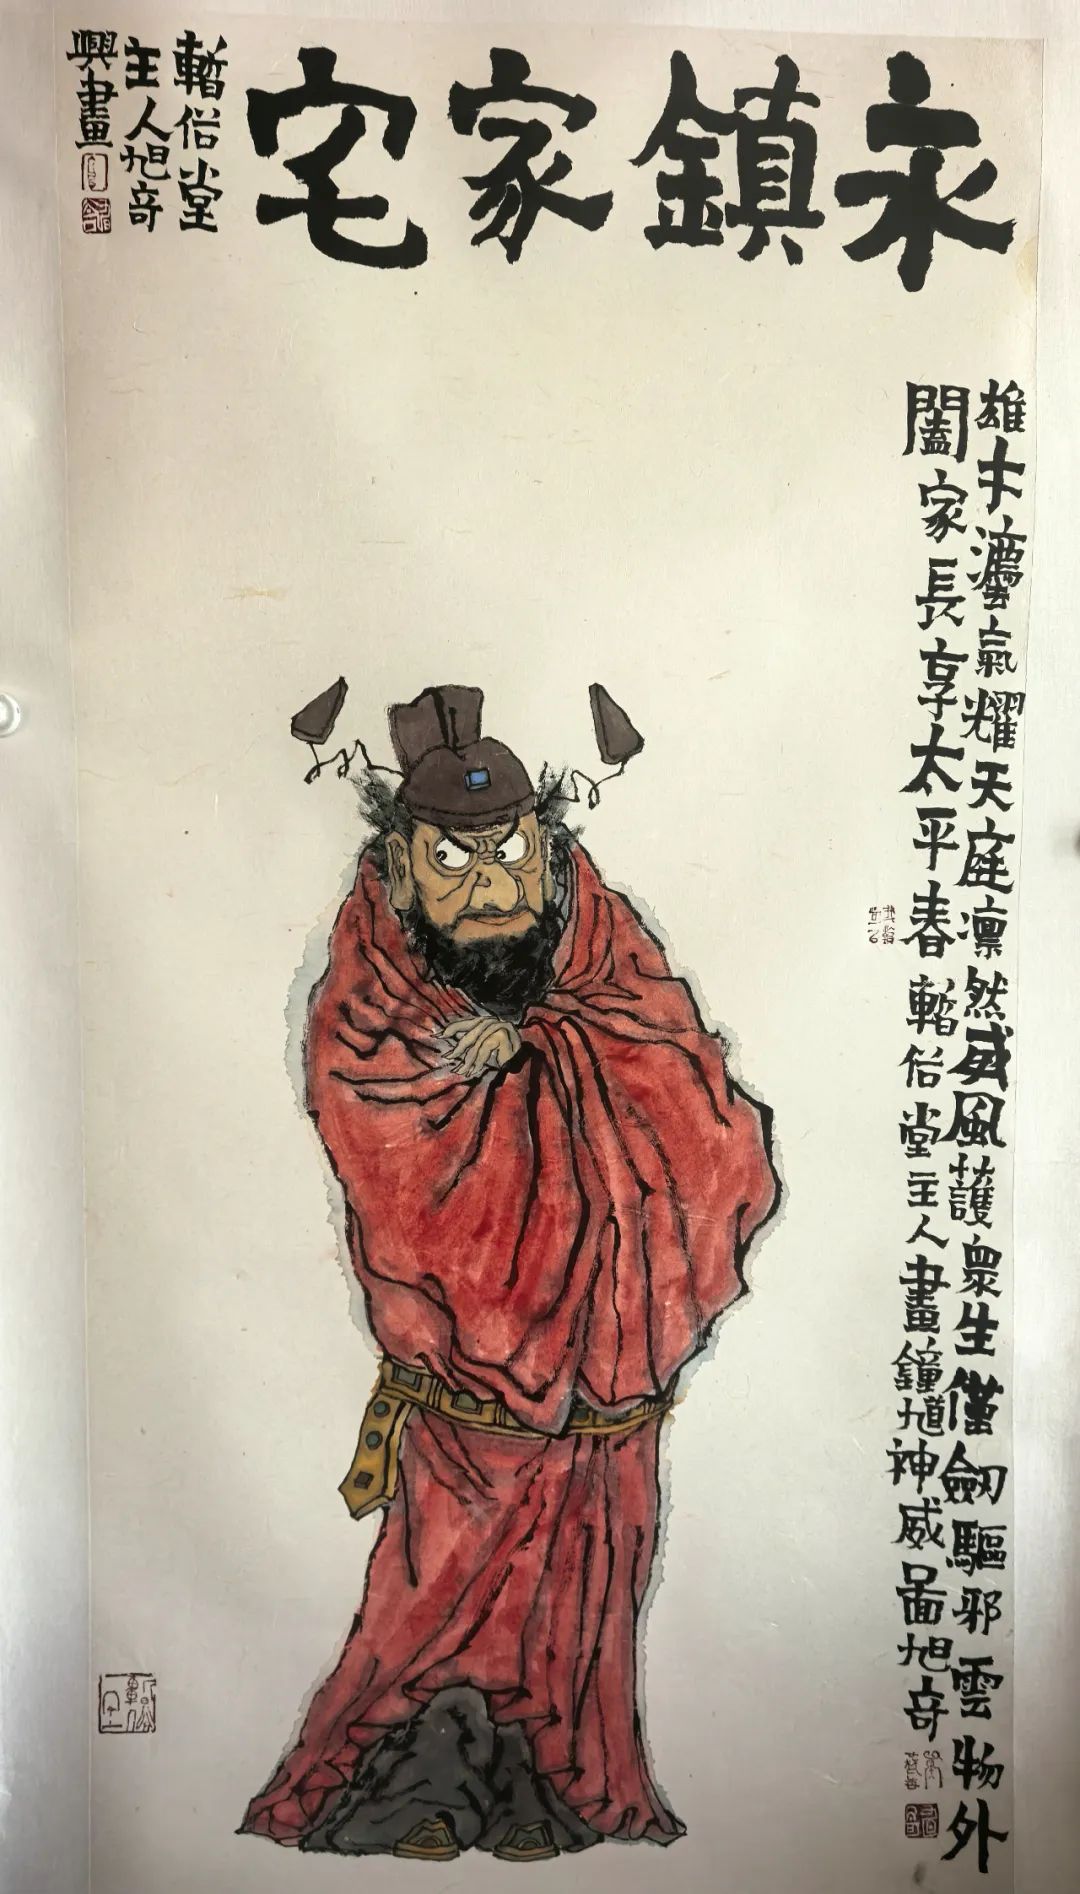 永鎮家宅
暫俗堂
主人旭竒
興畫
雄才灋氣耀天庭凛然威風護衆生僅劍驅邪雲物外
闔家長享太平春 暫俗堂主人畫鐘馗神威圖旭竒